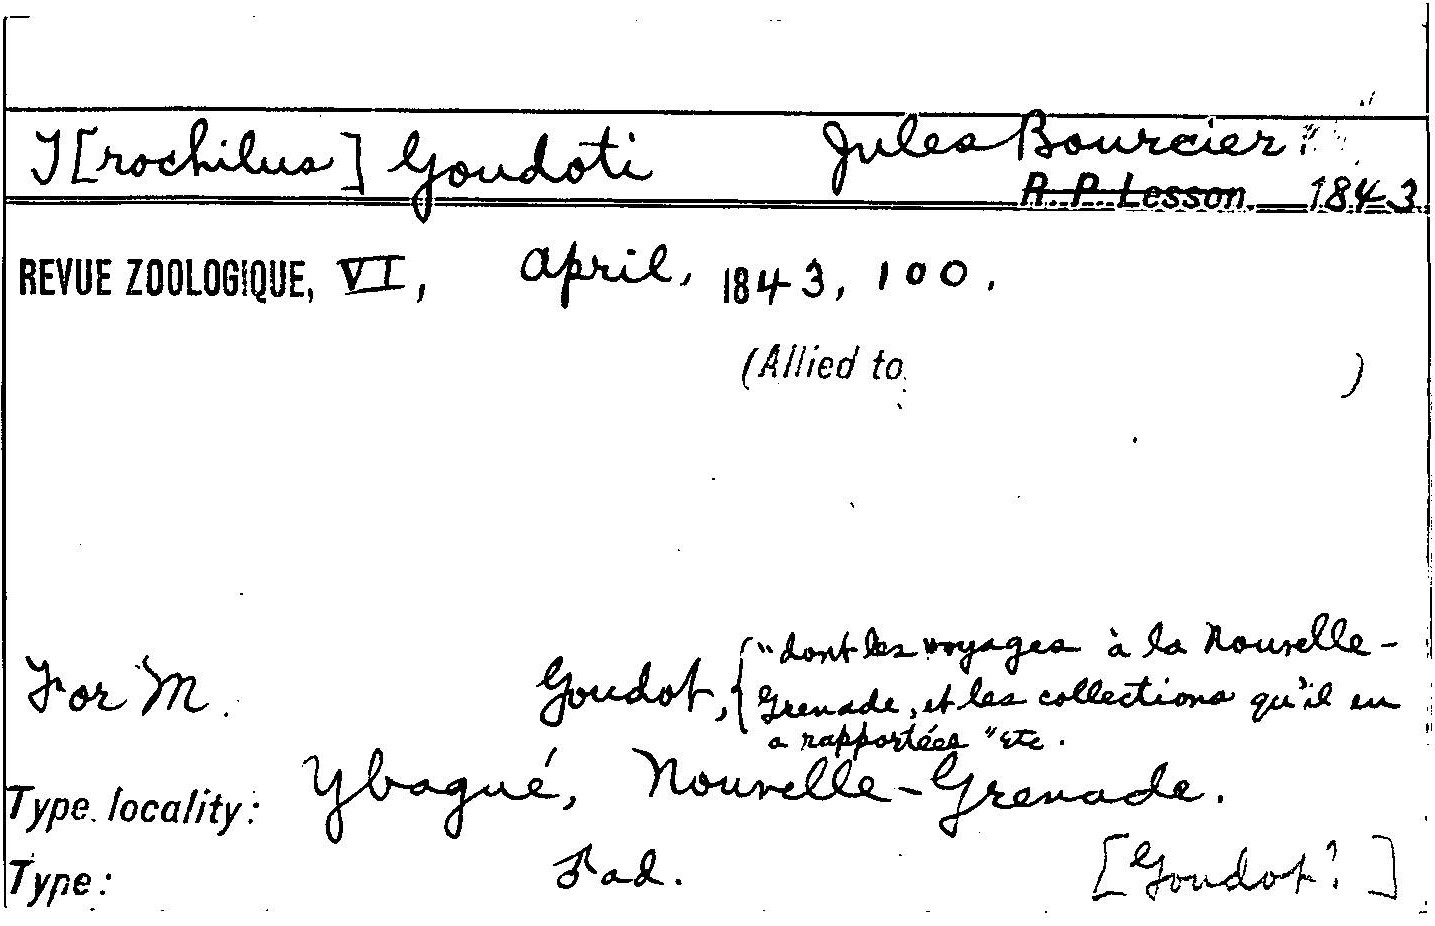 T[rochilus] Goudoti Jules Bourcier
R. P. Lesson 1843
REVUE ZOOLOGIQUE, VI, April, 1843, 100.
(Allied to )
For M. Goudot, { "dont les voyages à la Nouvelle-
Grenade, et les collections qu'il en
a rapportées" etc.
Type locality: Ybagué, Nouvelle-Grenade.
Type: ♂ ad. [Goudot?]